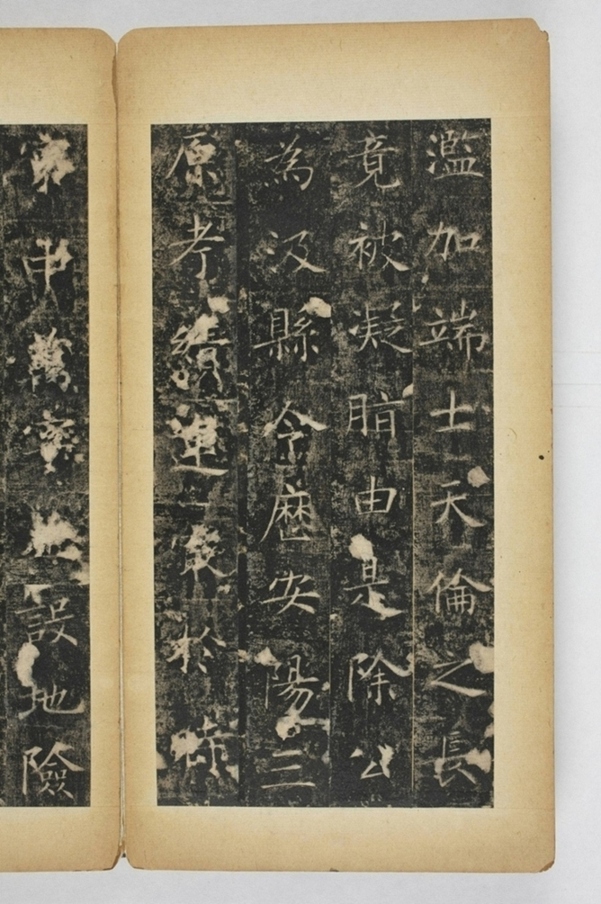 濫加端士天倫之長
竟被凝脂由是除公
為汲縣令歷安陽三
原考績連最於
甲萬設地險